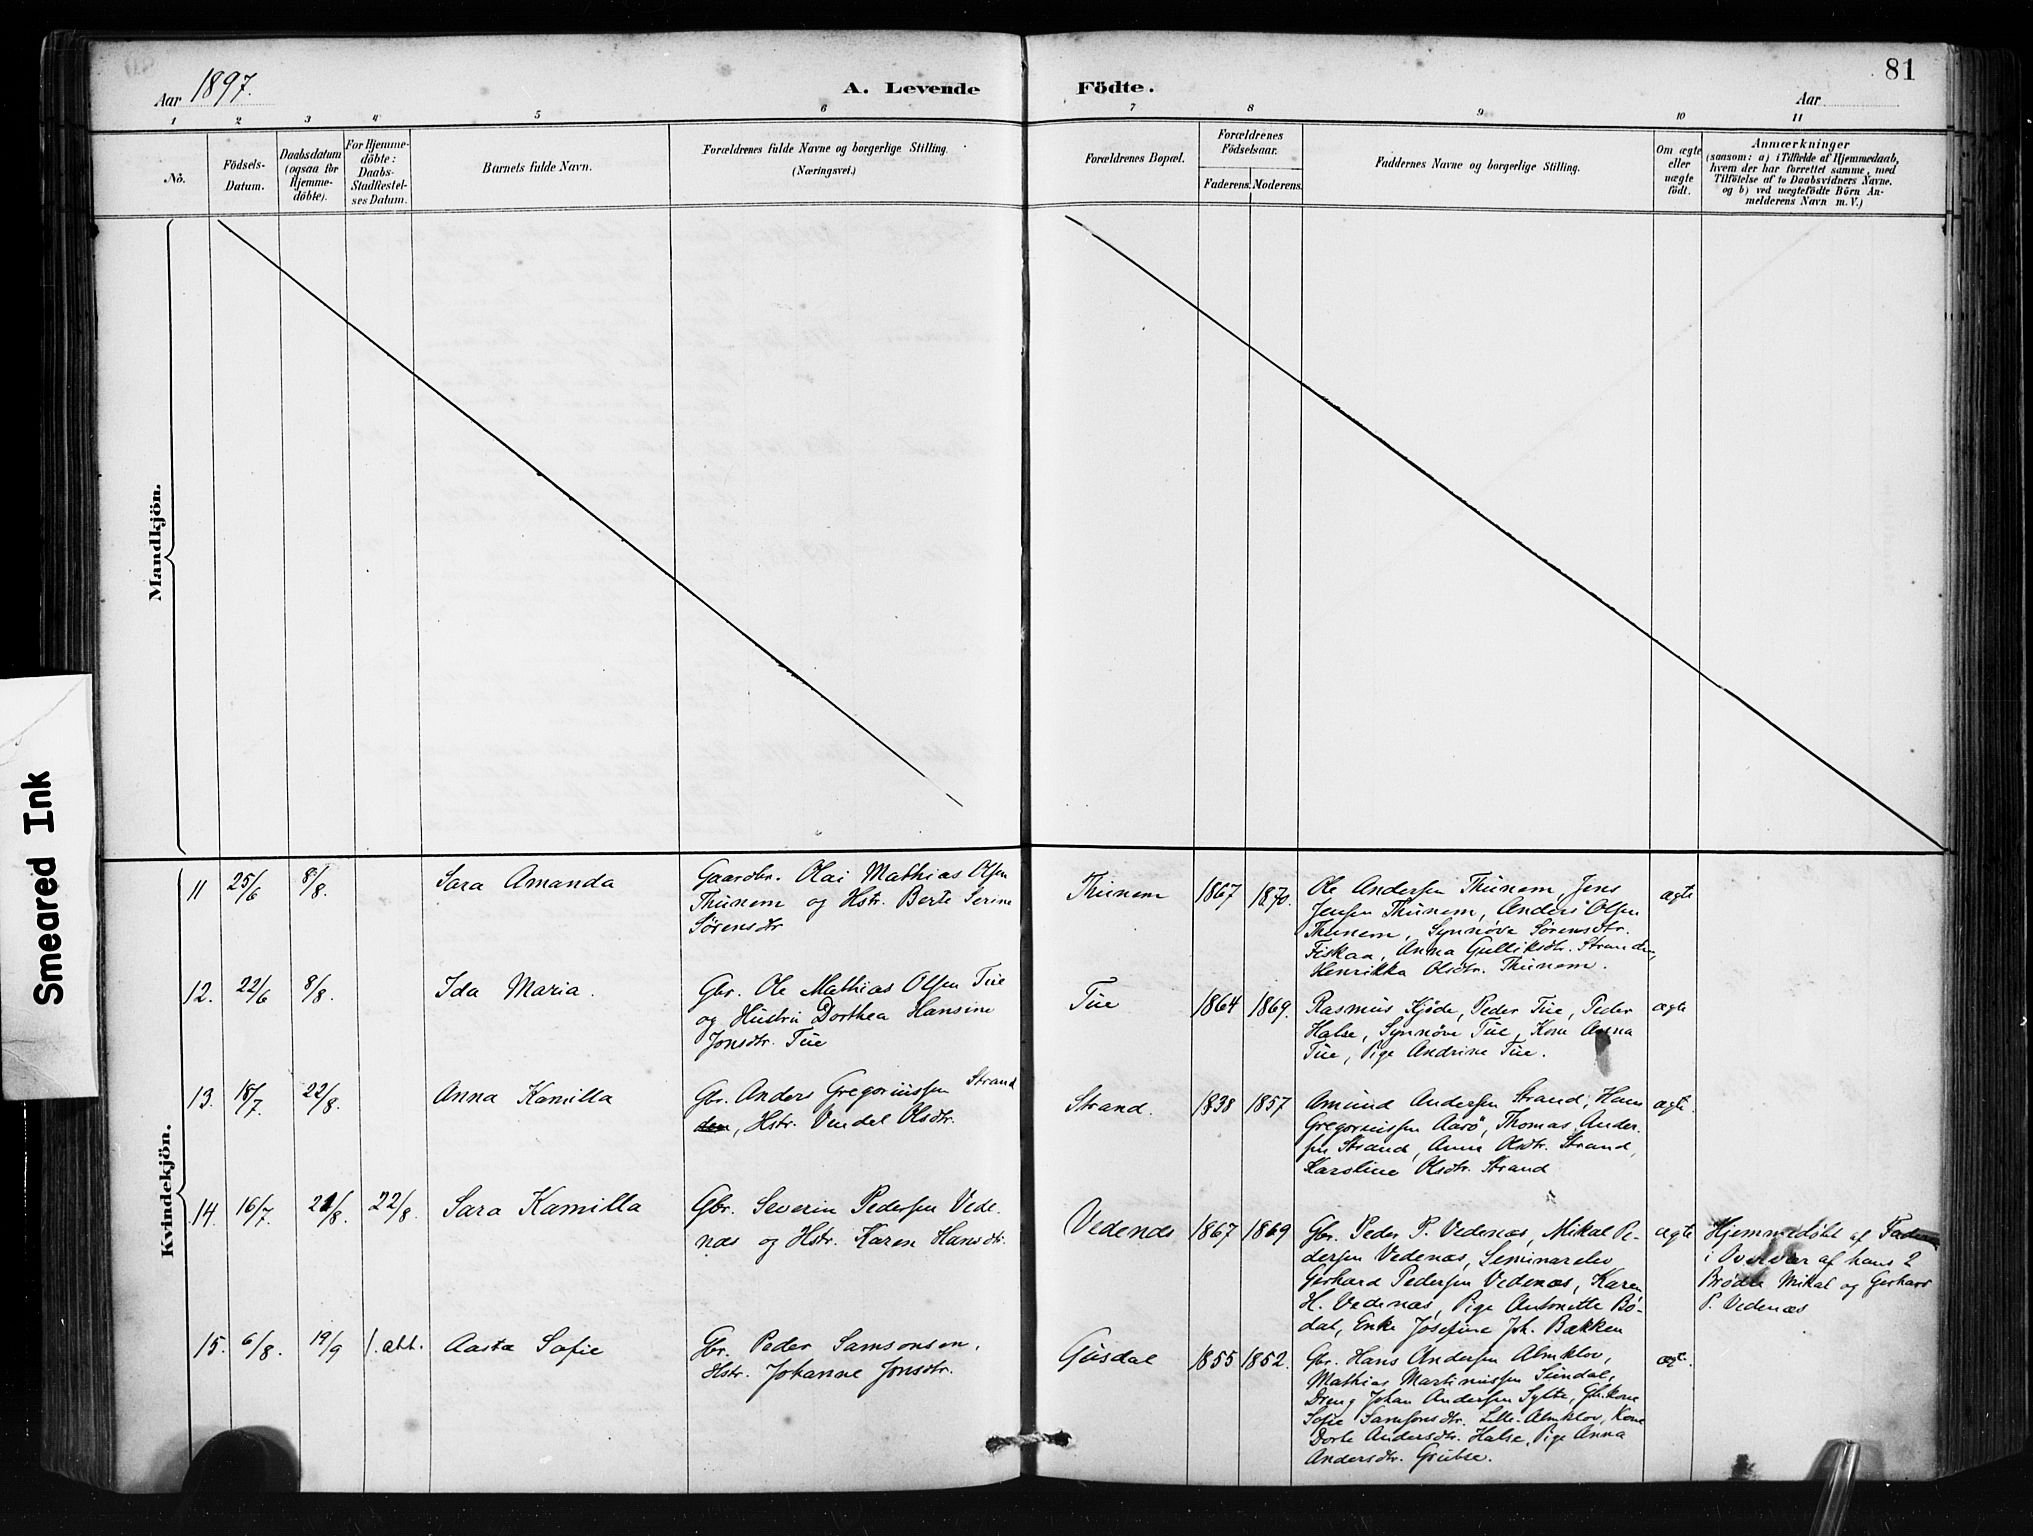 81
Aar 1897.
A. Levende Födte.
Aar
1 2 3 4 5 6 7 8 9 10 11
Nö.
Födsels-
Datum.
Daabsdatum
(ogsaa for
Hjemme-
döbte).
For Hjemme-
döbte:
Daabs-
Stadfæstel-
ses Datum.
Barnets fulde Navn.
Forældrenes fulde Navne og borgerlige Stilling.
(Næringsvei.)
Forældrenes Bopæl.
Forældrenes
Födselsaar.
Faderens. Moderens.
Faddernes Navne og borgerlige Stilling.
Om ægte
eller
uægte
födt.
Anmærkninger
(saasom: a) i Tilfælde af Hjemmedaab,
hvem der har forrettet samme, med
Tilföielse af to Daabsvidners Navne,
og b) ved uægtefödte Börn An-
melderens Navn m. V.)
Mandkjön.
Smeared Ink
Kvindekjön.
11 25/6 8/8. Sara Amanda
Gaardbr. Olai Mathias Olsen
Thunem og Hstr. Berte Serine
Sørensdtr
Thunem 1867 1870.
Ole Andersen Thunem, Jens
Jensen Thunem, Anders Olsen
Thunem, Synnøve Sørensdtr.
Fiskaa, Anna Gulliksdtr. Stranden,
Henrikka Olsdtr. Thunem.
ægte
12. 22/6 8/8. Ida Maria.
Gbr. Ole Mathias Olsen Tue
og Hustru Dorthea Hansine
Jonsdtr. Tue
Tue 1864 1869.
Rasmus Kjøde, Peder Tue, Peder
Halse, Synnøve Tue, Kone Anna
Tue, Pige Andrine Tue.
ægte
13. 18/7. 22/8. Anna Kamilla
Gbr. Anders Gregoriussen Strand
den, Hstr. Vendel Olsdtr.
Strand. 1838 1857
Amund Andersen Strand, Hans
Gregoriussen Aarö, Thomas Ander-
sen Strand, Anne Olsdtr. Strand,
Karoline Olsdtr. Strand
ægte.
14. 16/7. 21/8. 22/8. Sara Kamilla
Gbr. Severin Pedersen Vede-
næs og Hstr. Karen Hansdtr.
Vedenæs 1867 1869
Gbr. Peder P. Vedenæs, Mikal Pe-
dersen Vedenæs, Seminarelev
Gerhard Pedersen Vedenæs, Karen
H. Vedenæs, Pige Antonette Bö-
dal, Enke Josefine Joh. Bakken
ægte
Hjemmedøbt af Faderen
i Overvær af hans 2
Brødre Mikal og Gerhard
P. Vedenæs
15. 6/8. 19/9 f. att. Aasta Sofie
Gbr. Peder Samsonsen,
Hstr. Johanne Jonsdtr.
Gusdal 1855 1852.
Gbr. Hans Andersen Almklov,
Mathias Martinussen Sundal,
Dreng Johan Andersen Sylte, Gbkone
Sofie Samsonsdtr. Lille-Almklov, Kone
Dorte Andersdtr. Halse, Pige Anna
Andersdtr. Grubse.
ægt.